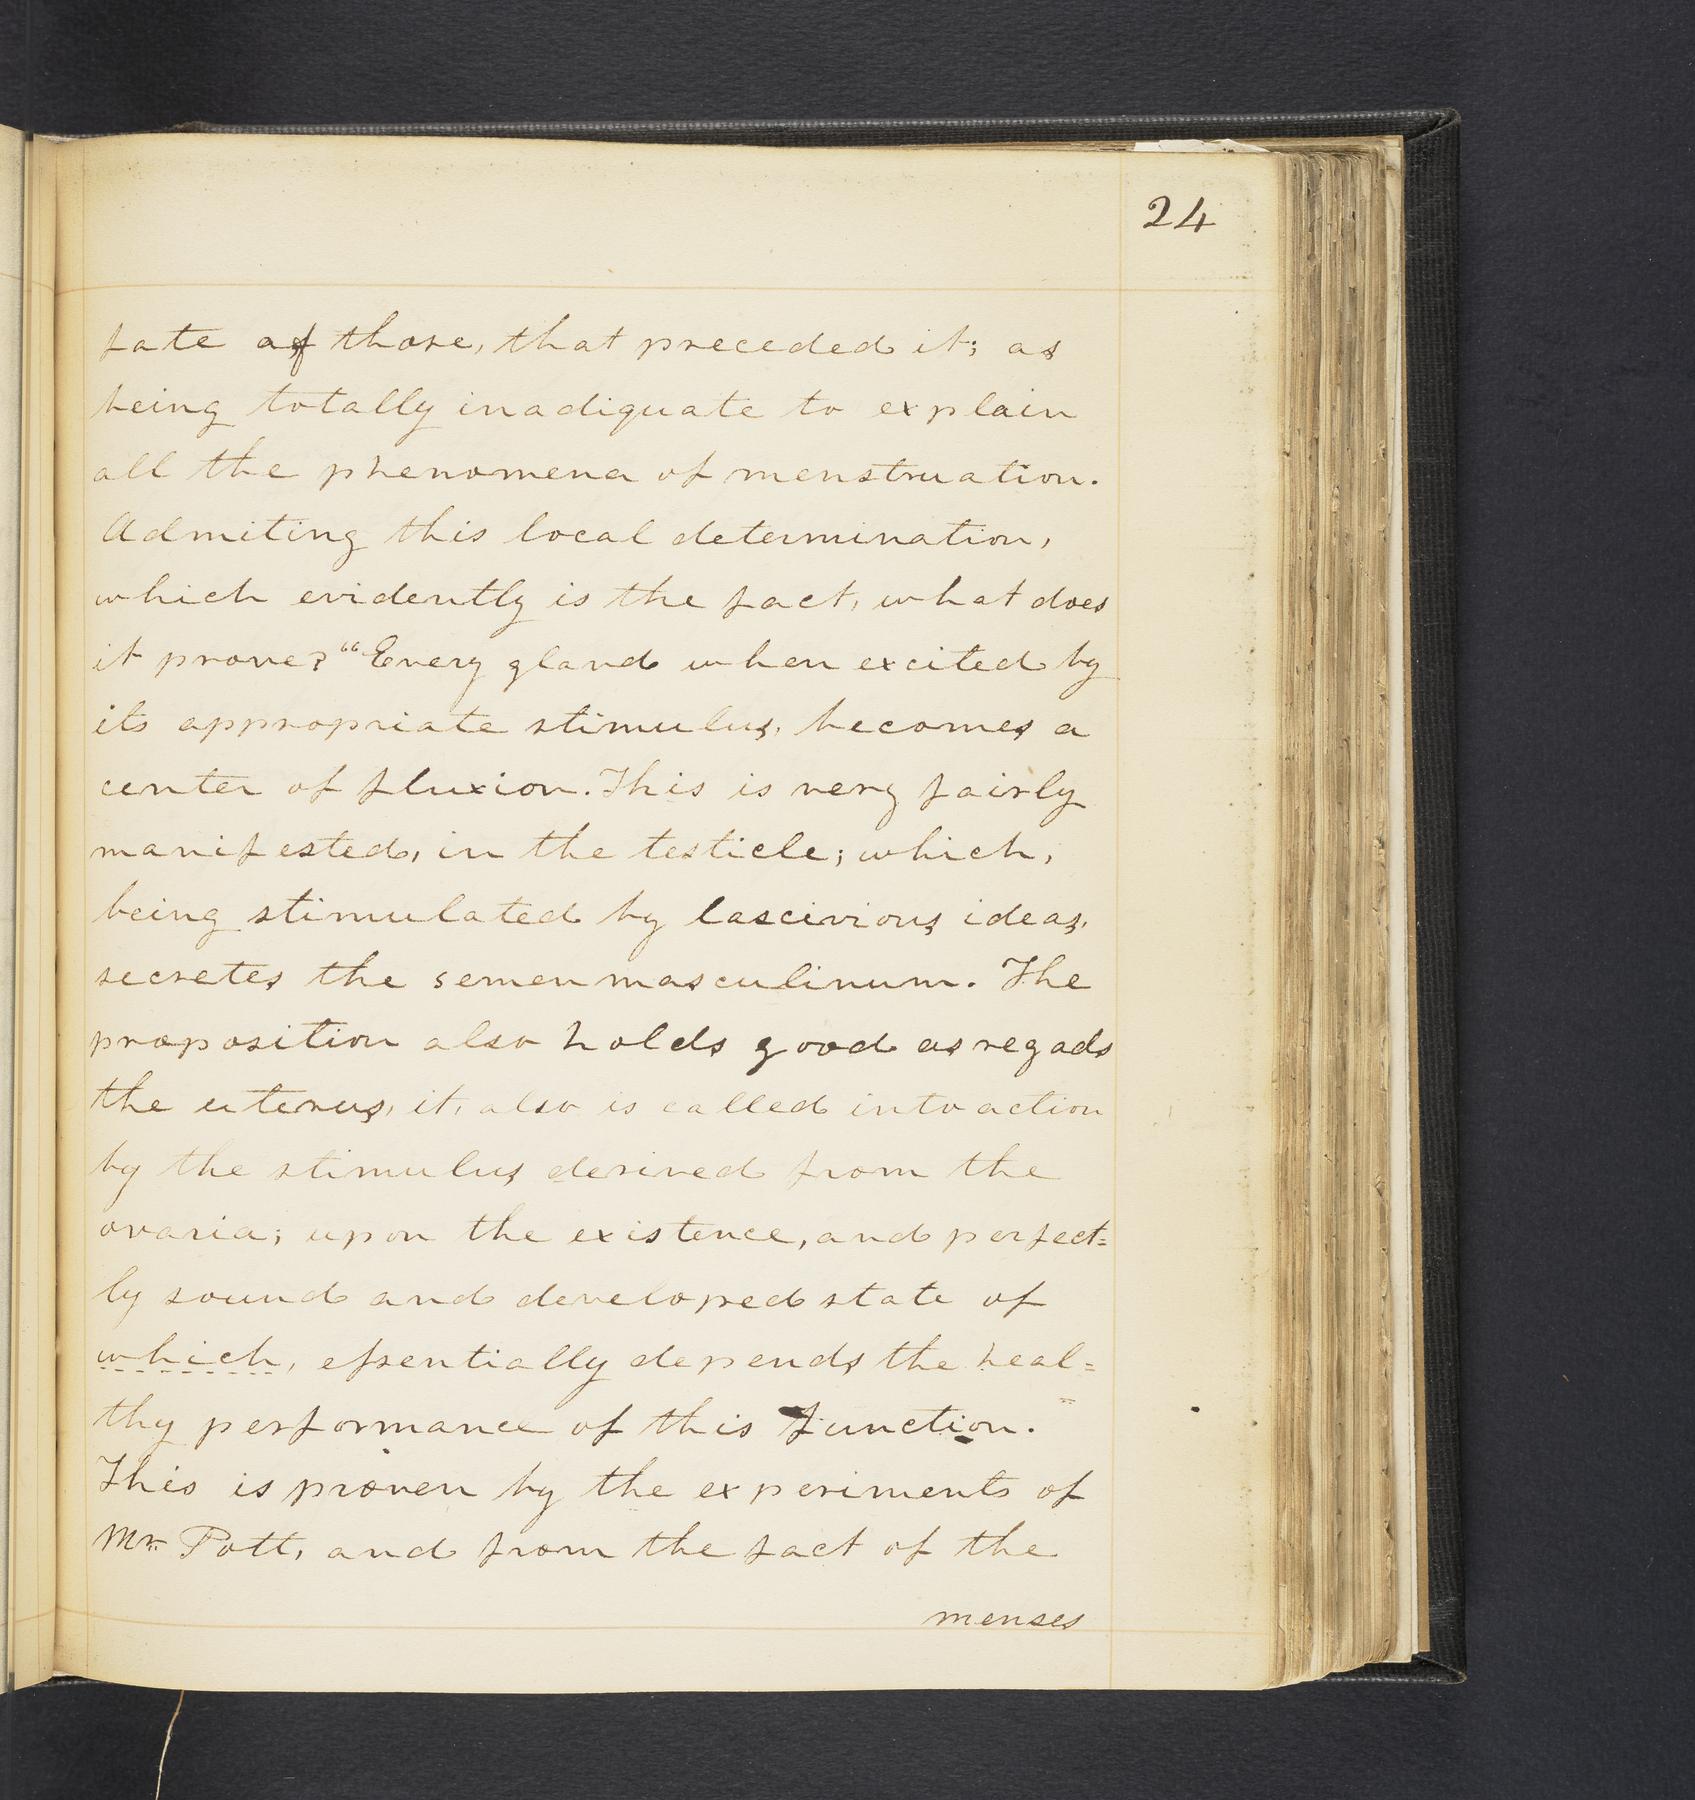 24
fate of those, that preceded it; as
being totally inadiquate to explain
all the phenomena of menstruation.
Admiting this local determination,
which evidently is the fact, what does
it prove? “Every gland when excited by
its appropriate stimulus, becomes a
center of fluxion. This is very fairly
manifested, in the testicle; which,
being stimulated by lascivious ideas,
secretes the semen masculinum. The
proposition also holds good as regads
the uterus, it, also is called into action
by the stimulus derived from the
ovaria; upon the existence, and perfect=
ly sound and developed state of
which, essentially depends the heal=
thy performance of this function.”
This is proven by the experiments of
Mr. Pott, and from the fact of the
menses